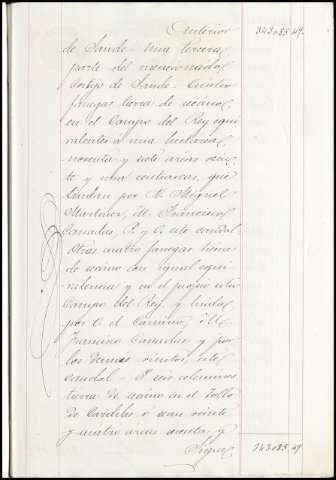 Anterior 343085 49.
de Sande. Una tercera
parte del mencionado
Cortijo de Sande. Cuatro
fanegas tierra de secano
en el Campo del Rey equi
valentes á una hectarea
noventa y siete areas vein
te y una centiareas, que
lindan por N. Miguel
Martinez, M. Francisco
Canadas, P. y L. este caudal
Otras cuatro fanegas tierra
de secano con igual equi
valencia y en el propio sitio
Campo del Rey, y lindas
por L. el Camino, M.
Francisco Canadas y por
los demas vientos este
Caudal. Y seis celemines
tierra de secano en el
de o sean veinte
y cuatro areas sesenta y
Sigue 343085 49